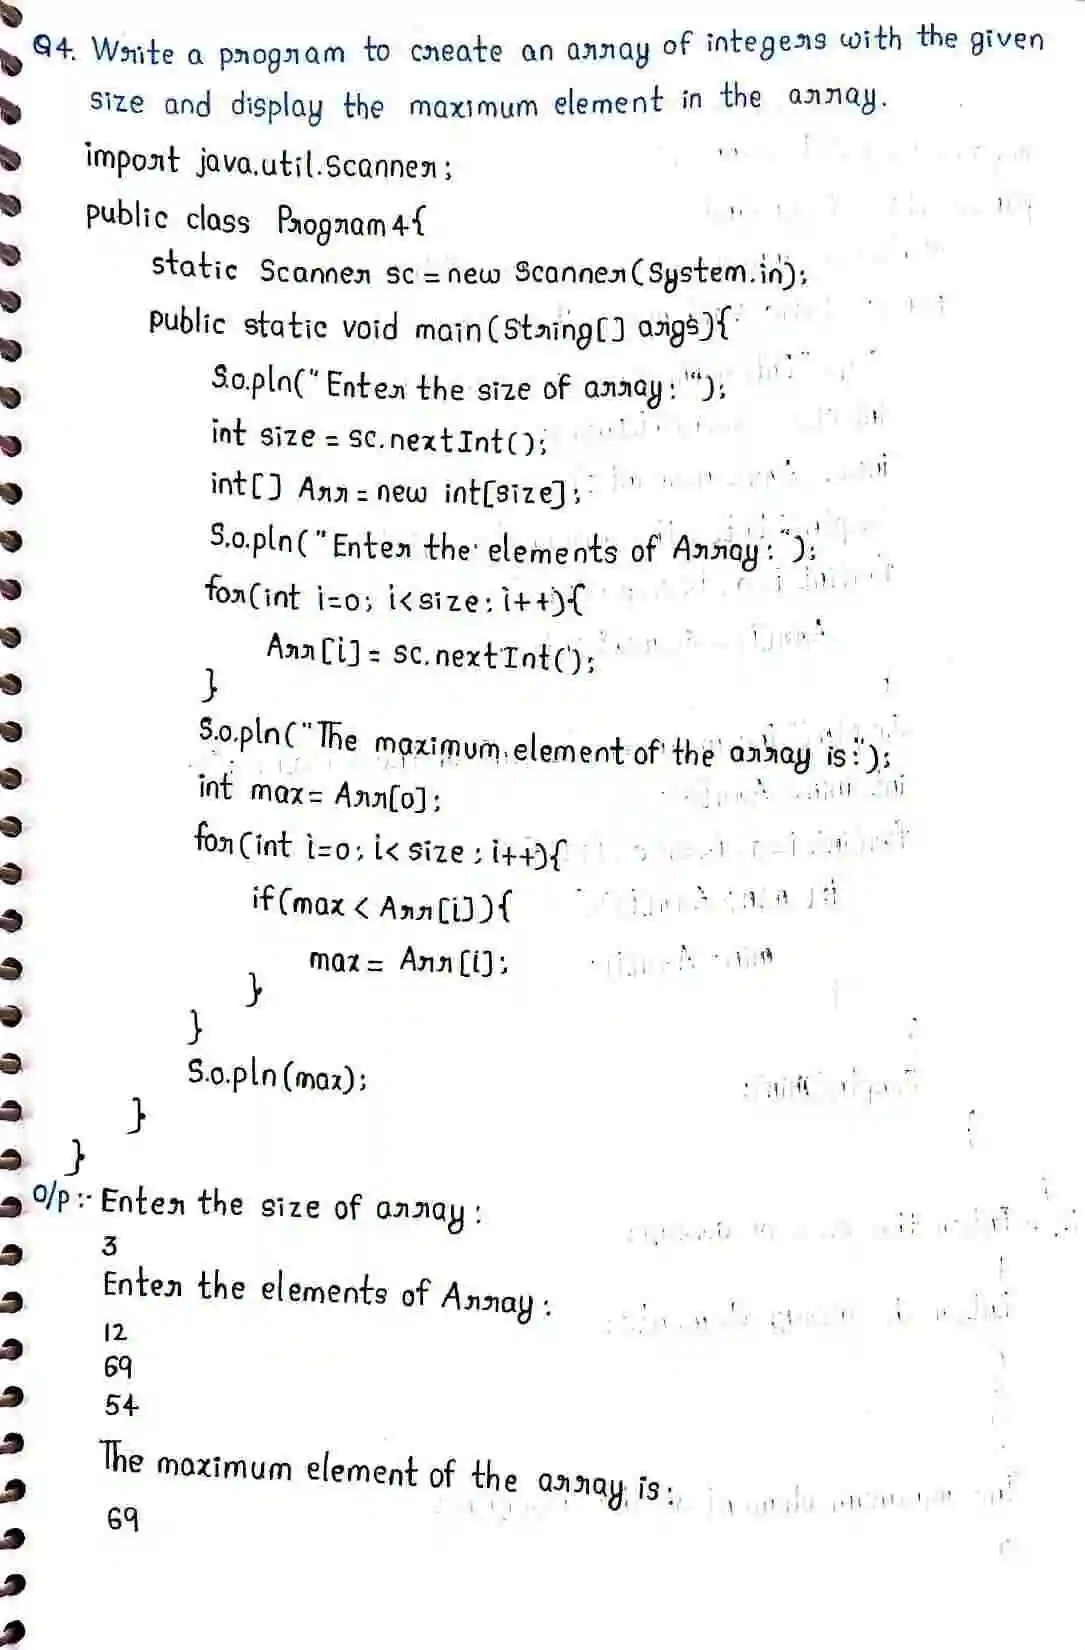 Q4. Write a program to create an array of integers with the given
size and display the maximum element in the array.
import java.util.Scanner;
public class Program4{
static Scanner sc = new Scanner(System.in);
public static void main(String[] args){
S.o.pln("Enter the size of array:");
int size = sc.nextInt();
int[] Arr = new int[size];
S.o.pln("Enter the elements of Array:");
for(int i=0; i<size; i++){
Arr[i] = sc.nextInt();
}
S.o.pln("The maximum element of the array is:");
int max = Arr[0];
for(int i=0; i<size; i++){
if(max < Arr[i]){
max = Arr[i];
}
}
S.o.pln(max);
}
}
O/P :- Enter the size of array:
3
Enter the elements of Array:
12
69
54
The maximum element of the array is:
69